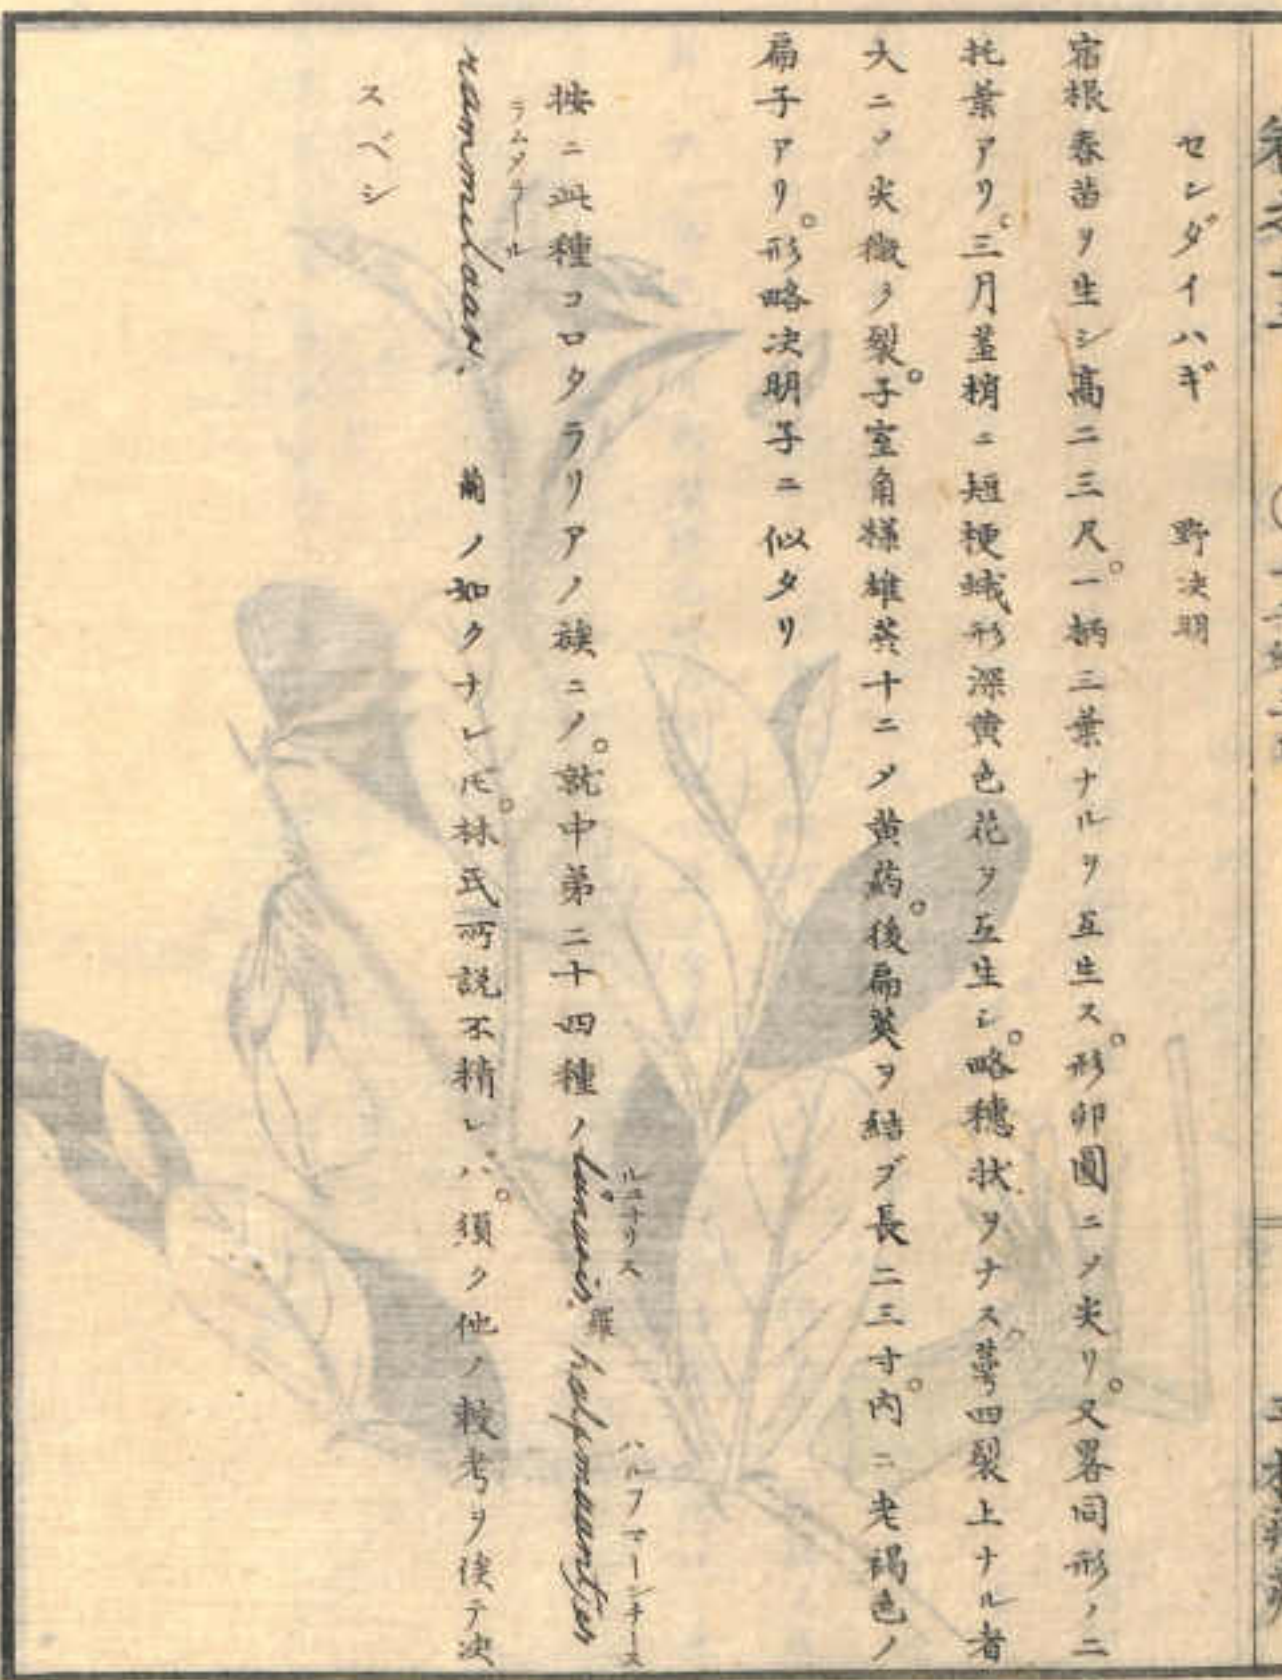 センダイハギ　野决明
宿根春苗ヲ生シ高二三尺。一柄三葉ナルヲ互生ス。形卵圓ニノ尖リ。又畧同形ノ二
托葉アリ。三月莖梢ニ短梗蛾形深黄色花ヲ互生シ。略穗状ヲナス。萼四裂上ナル者
大ニノ尖微ク裂。子室角様雄蘂十ニノ黄葯。後扁莢ヲ結ブ長二三寸。内ニ老褐色ノ
扁子アリ。形略决明子ニ似タリ
按ニ此種コロタラリアノ族ニノ。就中第二十四種ノlunaris. 羅 halfmaantjes
ルユナリス ハルフマーンチース
rammelaar. 蘭ノ如クナレ𪜈。林氏所説不精レバ。須ク他ノ較考ヲ俟テ决
ラムメラール
スベシ